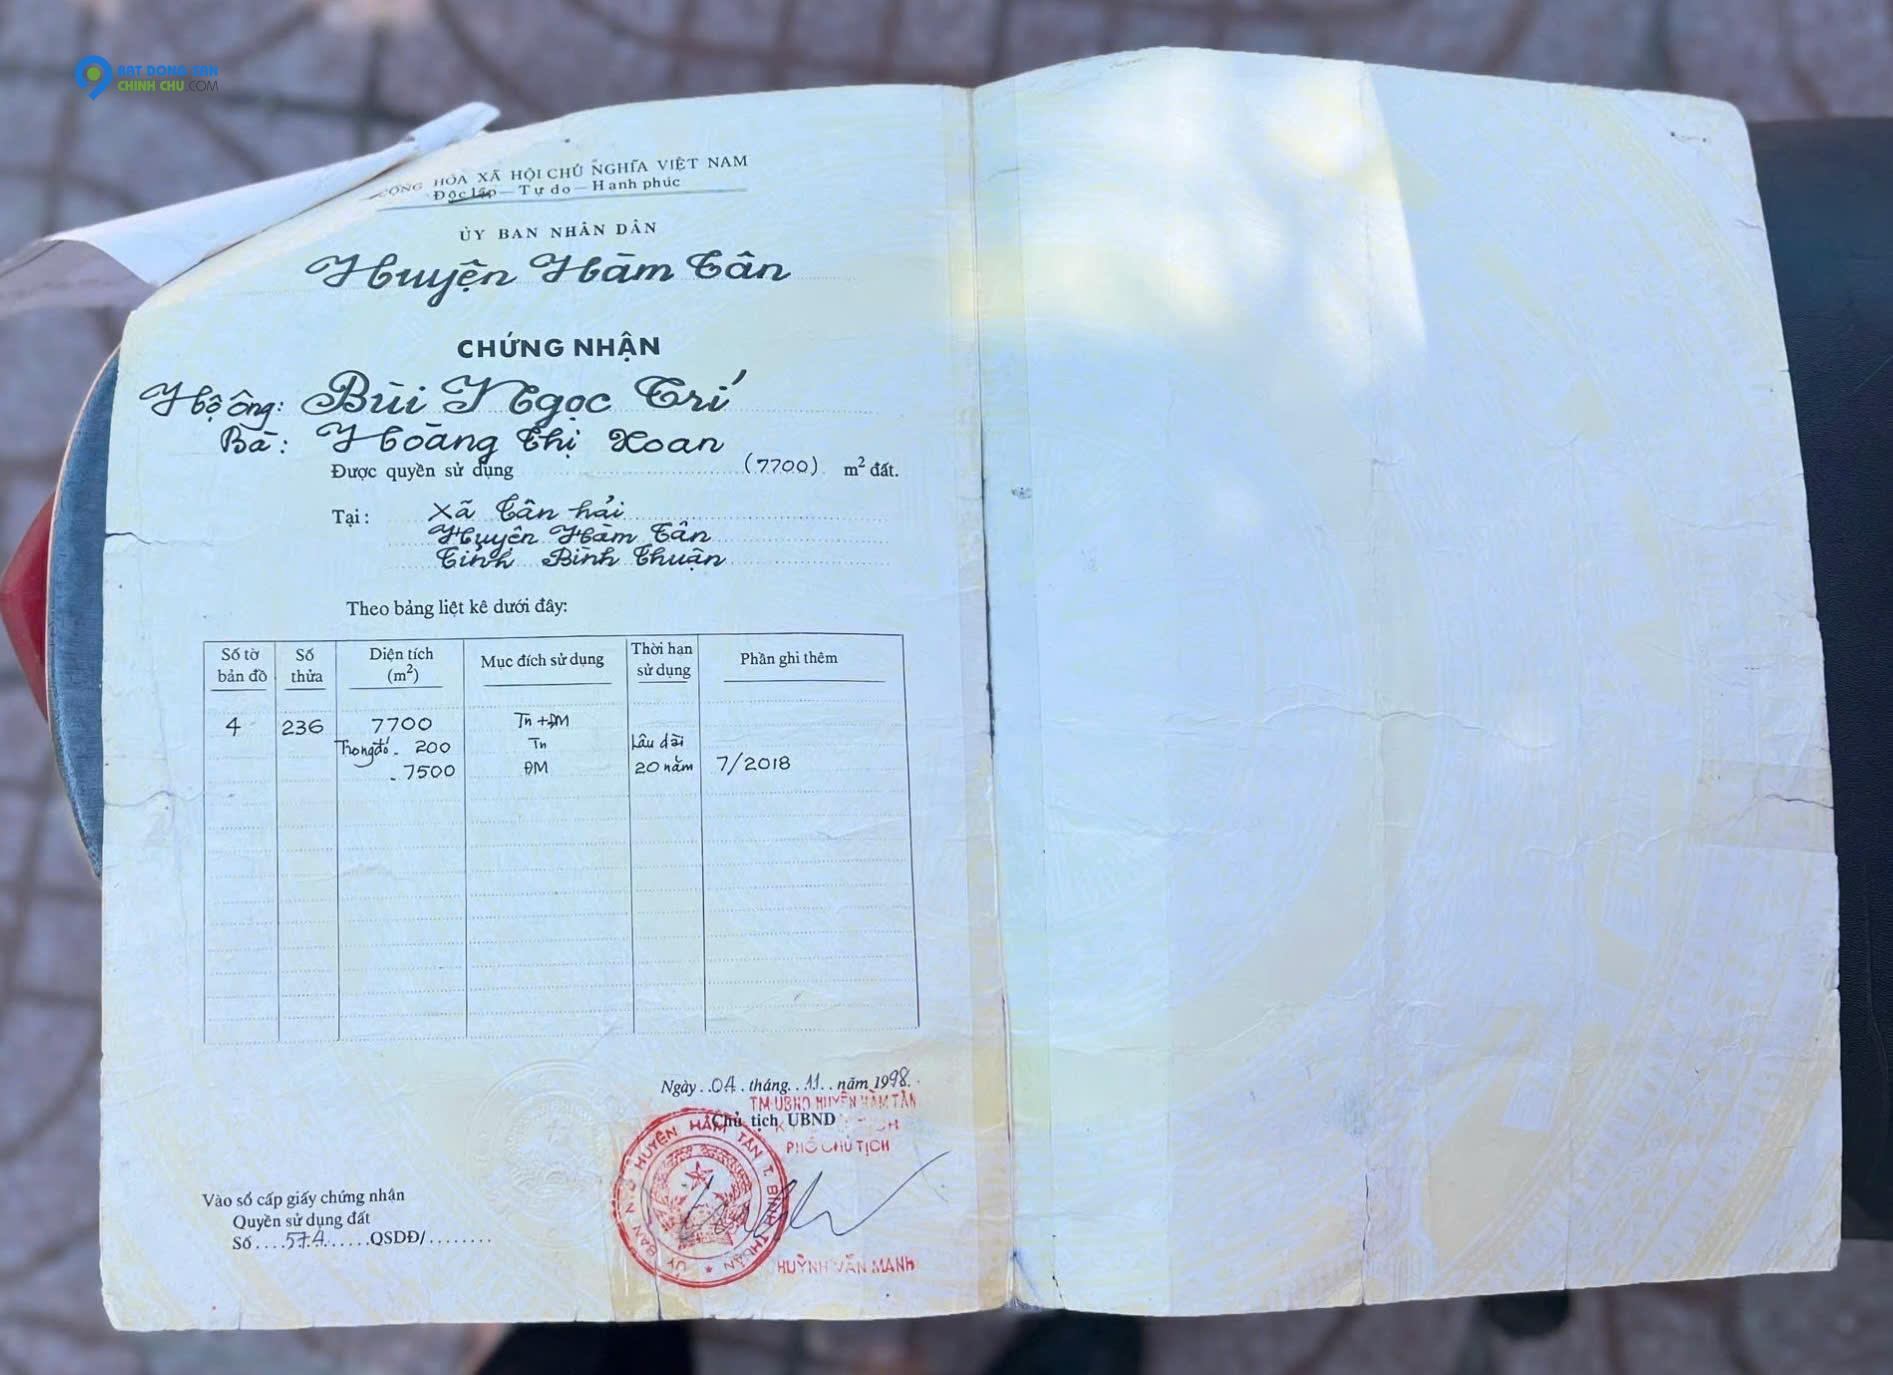 BAT DONG SAN
CHINH CHU.COM
CỘNG HÒA XÃ HỘI CHỦ NGHĨA VIỆT NAM
Độc lập – Tự do – Hạnh phúc
ỦY BAN NHÂN DÂN
Huyện Hàm Tân
CHỨNG NHẬN
Hộ ông: Bùi Ngọc Trí
Bà: Hoàng Thị Xoan
Được quyền sử dụng (7700) m² đất.
Tại: Xã Tân hải
Huyện Hàm Tân
Tỉnh Bình Thuận
Theo bảng liệt kê dưới đây:
Số tờ bản đồ Số thửa Diện tích (m²) Mục đích sử dụng Thời hạn sử dụng Phần ghi thêm
4 236 7700 Tn+ĐM
Trong đó - 200 Tn Lâu dài
- 7500 ĐM 20 năm 7/2018
Ngày..04.tháng..11..năm 1998.
TM UBND HUYỆN HÀM TÂN
Chủ tịch UBND
PHÓ CHỦ TỊCH
ỦY BAN N.D HUYỆN HÀM TÂN T. BÌNH THUẬN
Vào sổ cấp giấy chứng nhận
Quyền sử dụng đất
Số....574......QSDĐ/........
HUỲNH VĂN MANH